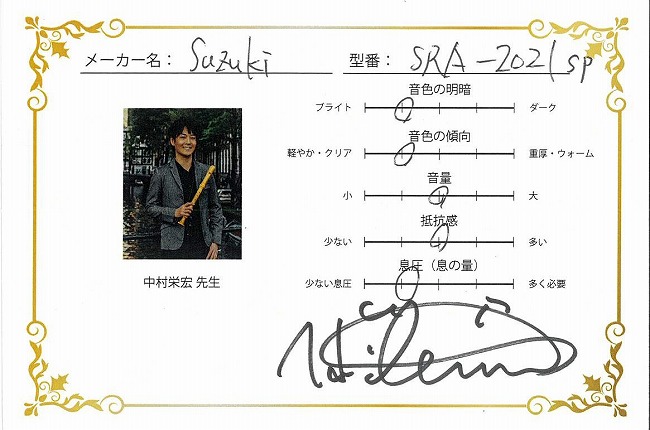 メーカー名： Suzuki 型番： SRA-202/sp
音色の明暗
ブライト ダーク
音色の傾向
軽やか・クリア 重厚・ウォーム
音量
小 大
抵抗感
少ない 多い
息圧（息の量）
少ない息圧 多く必要
中村栄宏 先生